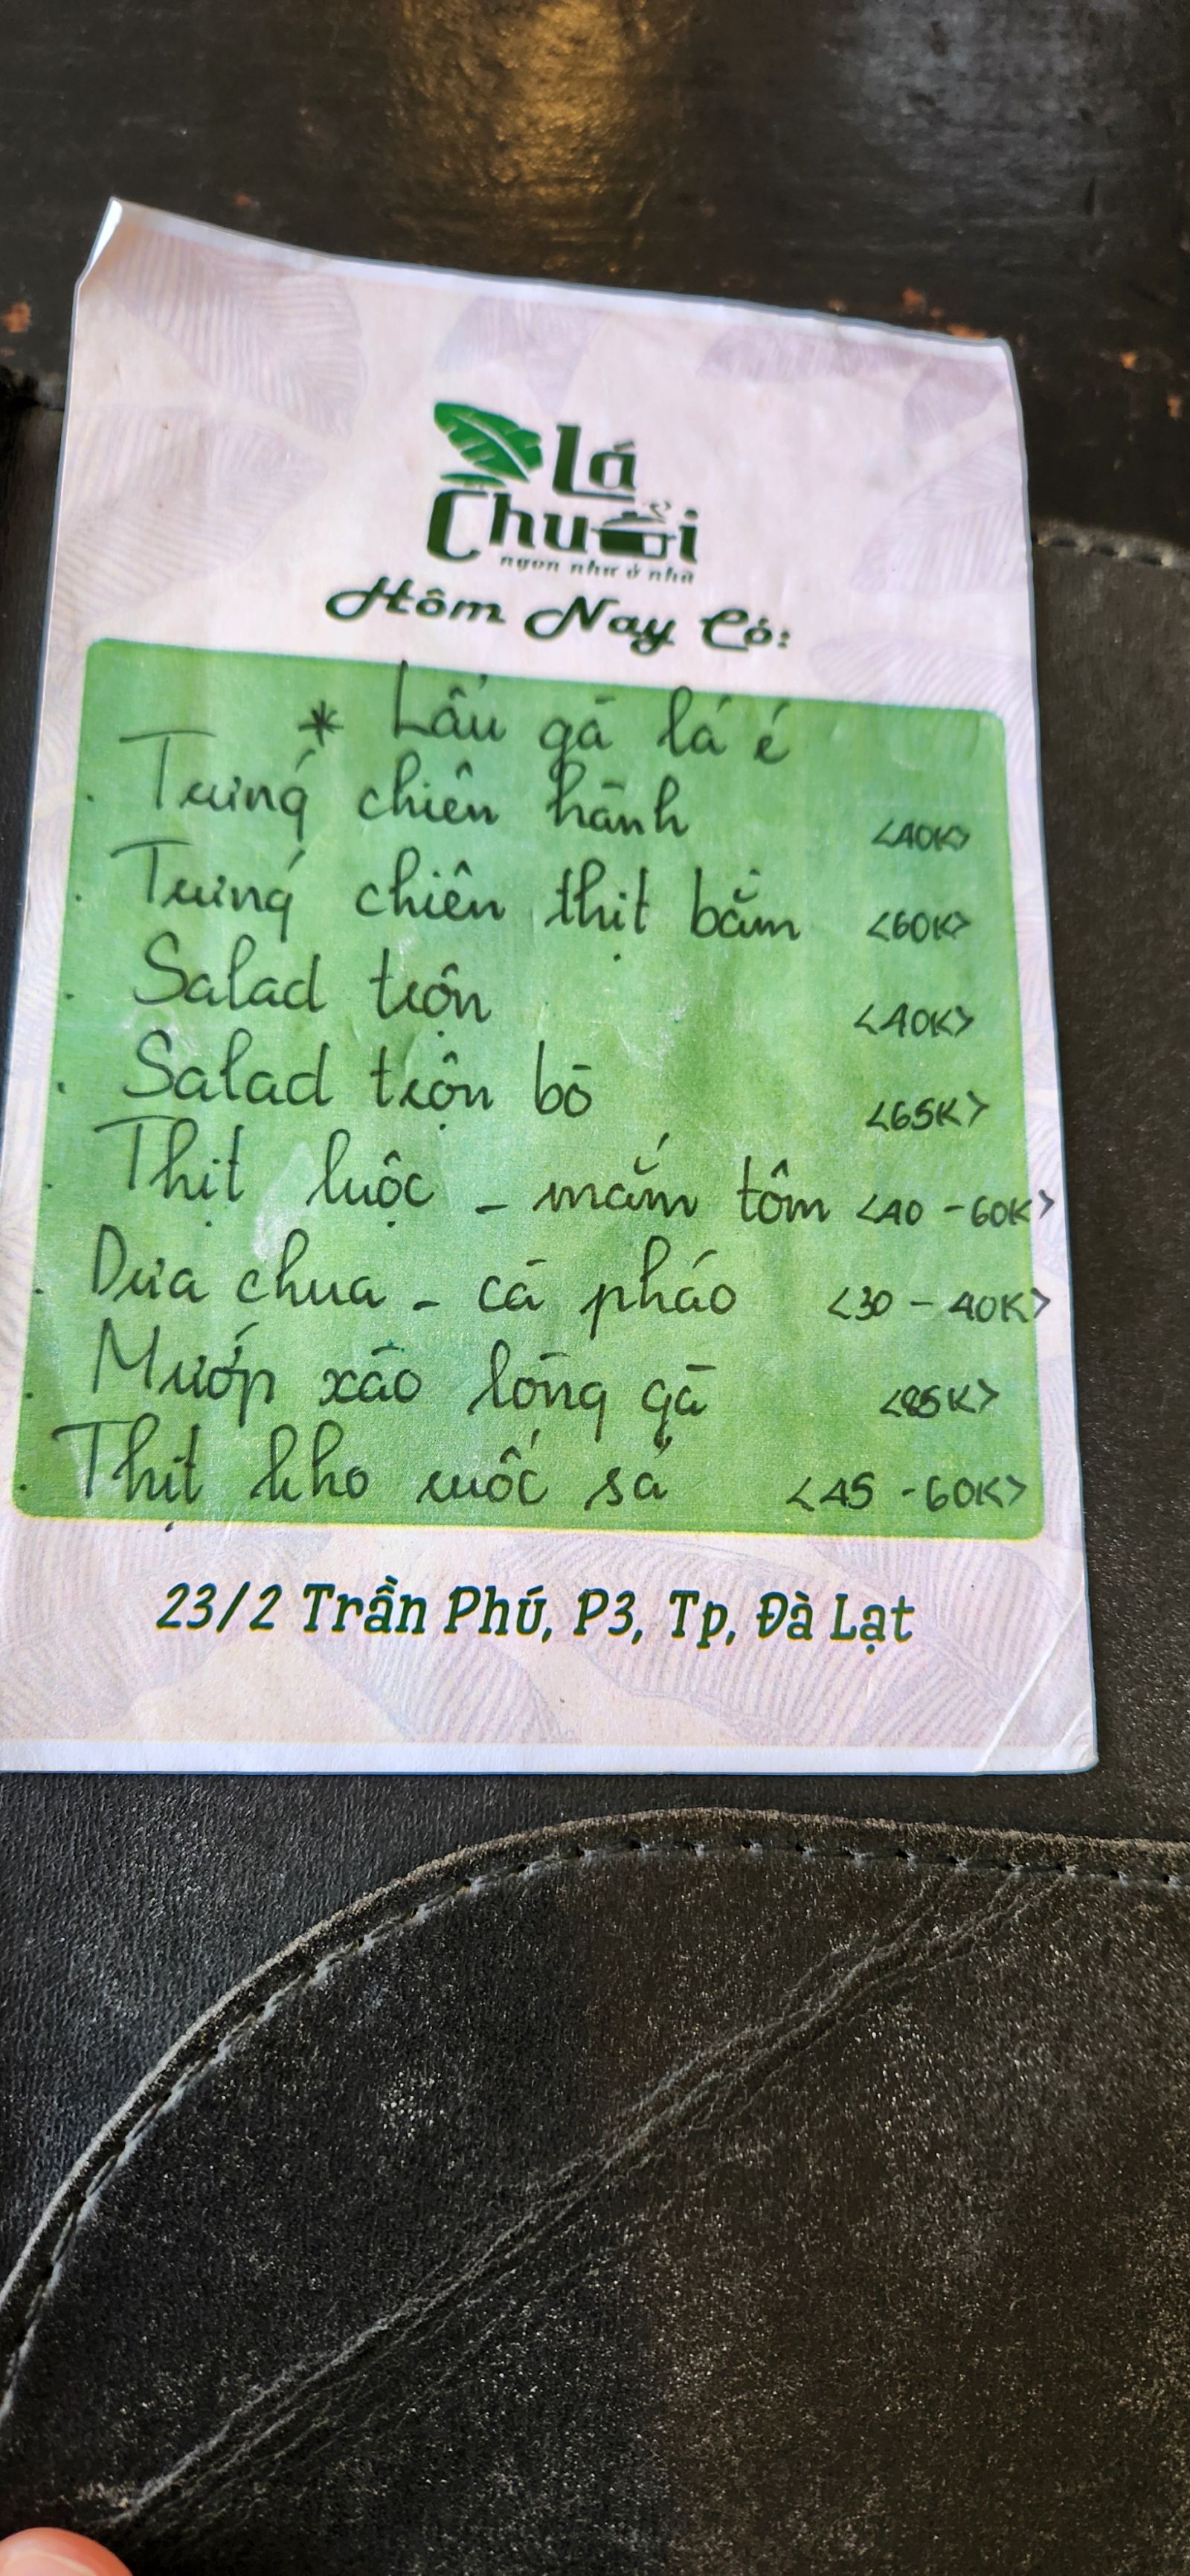 Lá
Chuối
ngon như ở nhà
Hôm Nay Có:
* Lẩu gà lá é
. Trứng chiên hành <40K>
. Trứng chiên thịt bằm <60K>
. Salad trộn <40K>
. Salad trộn bò <65K>
. Thịt luộc - mắm tôm <40 - 60K>
. Dưa chua - cà pháo <30 - 40K>
. Mướp xào lòng gà
. Thịt kho ruốc sả <45 - 60K>
23/2 Trần Phú, P3, Tp, Đà Lạt